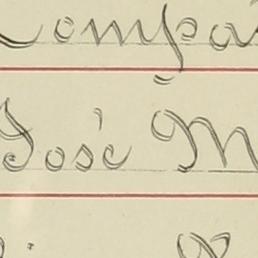 Compa
José M